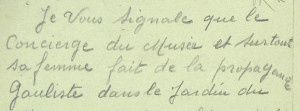 Je Vous signale que le
Concierge du Musée et surtout
sa femme fait de la propagande
Gauliste dans le Jardin du